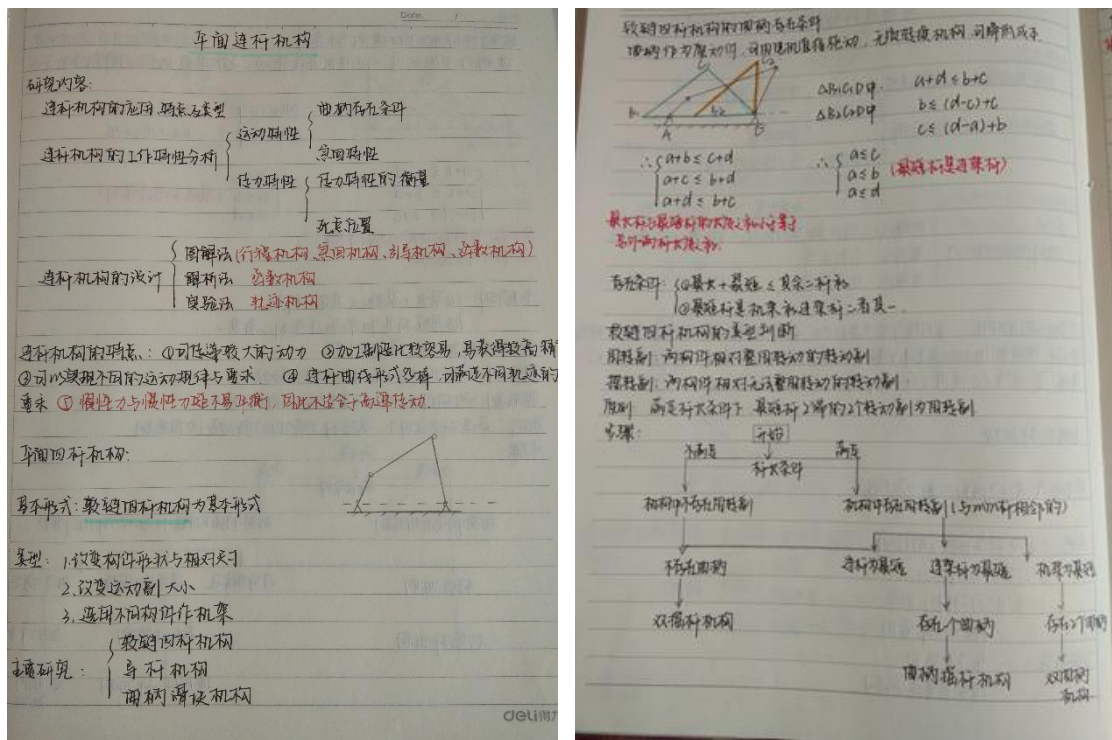 Date. /
平面连杆机构
研究内容:
连杆机构的应用、特点及类型
连杆机构的工作特性分析
运动特性
曲柄存在条件
急回特性
传力特性
传力特性的衡量
死点位置
连杆机构的设计
图解法(行程机构、急回机构、引导机构、函数机构)
解析法 函数机构
实验法 轨迹机构
连杆机构的特点: ①可传递较大的动力 ②加工制造比较容易,易获得较高精
③可以实现不同的运动规律与要求. ④ 连杆曲线形式多样,可满足不同轨迹的
要求 ⑤ 惯性力与惯性力矩不易平衡,因此不适合于高速传动.
平面四杆机构:
基本形式:铰链四杆机构为基本形式
类型: 1.改变构件形状与相对尺寸
2.改变运动副大小
3.选用不同构件作机架
主要研究:
铰链四杆机构
导杆机构
曲柄滑块机构
deli得力
铰链四杆机构的曲柄存在条件
曲柄作为原动件,可用电机直接驱动,无须转换机构,可降低成本
A
△B₁C₁D中 a+d ≤ b+c
△B₂C₂D中 b ≤ (d-c)+c
c ≤ (d-a)+b
∴ a+b ≤ c+d
a+c ≤ b+d
a+d ≤ b+c
∴ a ≤ c
a ≤ b
a ≤ d
(最短杆是连架杆)
最大杆与最短杆的长度之和小于等于
另外两杆长度之和.
存在条件: ①最大+最短 ≤ 其余二杆和
②最短杆是机架和连架杆二者其一.
铰链四杆机构的类型判断
周转副: 两构件相对整周转动的转动副
摆转副: 两构件相对无法整周转动的转动副
原则: 满足杆长条件下,最短杆2端的2个转动副为周转副
步骤:
开始
不满足
杆长条件
满足
机构中不存在周转副
机构中存在周转副(与min杆相邻的)
不存在曲柄
连杆为最短
连架杆为最短
机架为最短
双摇杆机构
存在1个曲柄
存在2个曲柄
曲柄摇杆机构
双曲柄
机构